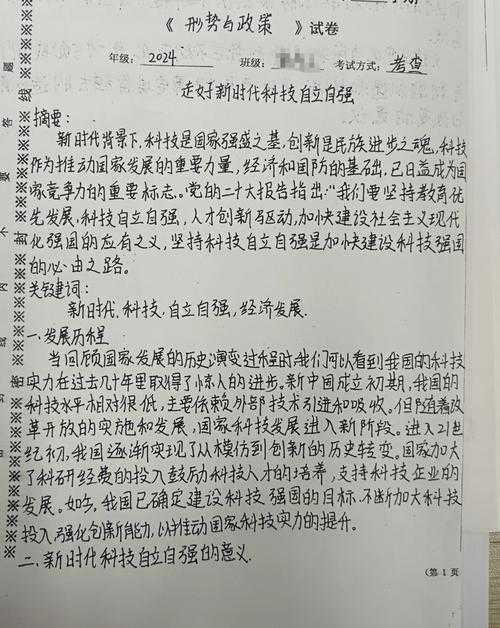 《 形势与政策 》试卷
年级: 2024 班级: 考试方式: 考查
走好新时代科技自立自强
摘要:
新时代背景下,科技是国家强盛之基,创新是民族进步之魂,科技
作为推动国家发展的重要力量,经济和国防的基础,已日益成为国
家竞争力的重要标志。党的二十大报告指出:“我们要坚持教育优
先发展,科技自立自强,人才创新驱动,加快建设社会主义现代
化强国的应有之义,坚持科技自立自强是加快建设科技强国
的必由之路。
关键词:
新时代,科技,自立自强,经济发展.
一.发展历程
当回顾国家发展的历史演变过程时,我们可以看到我国的科技
实力在过去几十年里取得了惊人的进步。新中国成立初期,我国的
科技水平相对很低,主要依赖外部技术引进和吸收。但随着改
革开放的实施和发展,国家科技发展进入新阶段。进入21世
纪初,我国逐渐实现了从模仿到创新的历史转变。国家加大
了科研经费的投入鼓励科技人才的培养,支持科技企业的
发展。如今,我国已确定建设科技强国的目标,不断加大科技
投入,强化创新能力,以推动国家科技实力的提升。
二.新时代科技自立自强的意义.
(第 1 页
题
答
要
不
内
线
封
密